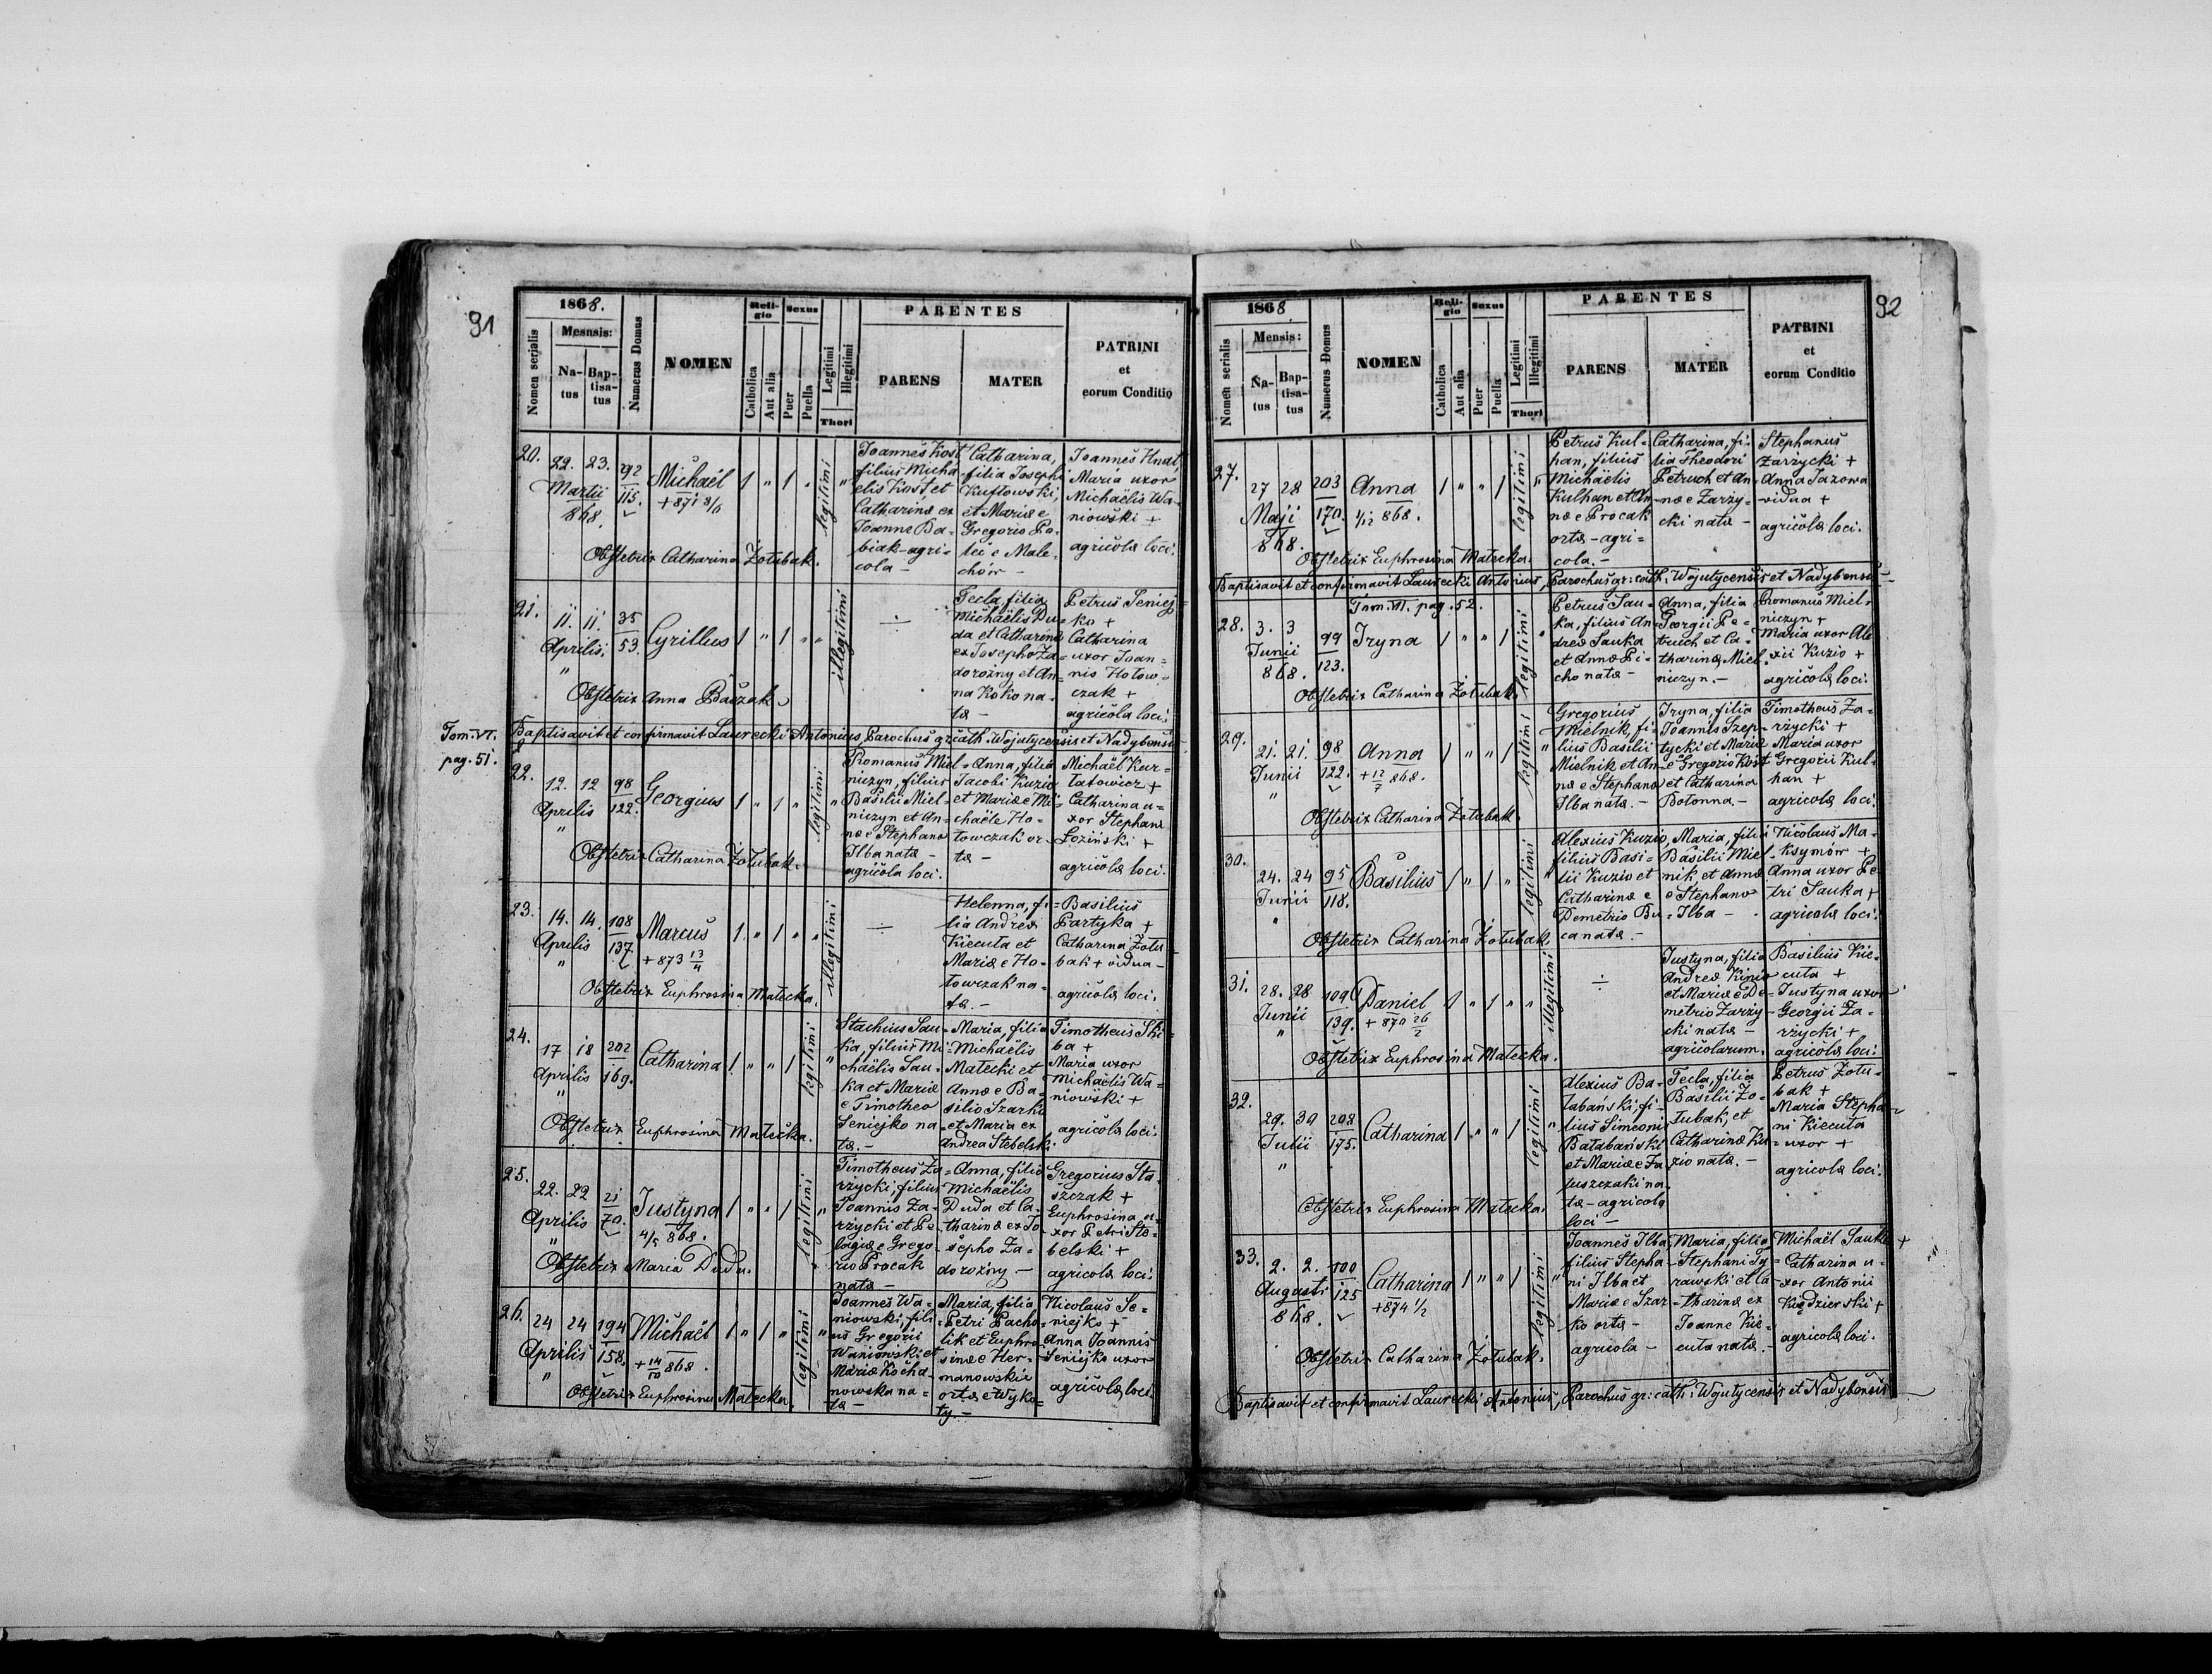 91
1868.
Nomen serialis
Mesnsis:
Na-
tus
Bap-
tisa-
tus
Numerus Domus
NOMEN
Reli-
gio
Catholica
Aut alia
Sexus
Puer
Puella
Legitimi
Illegitimi
Thori
PARENTES
PARENS
MATER
PATRINI
et
eorum Conditio
20.
22. 23.
Martii
868.
292
115.
Michaël
+ 871 8/6
1 " 1 "
legitimi
Joannes Kost
filius Micha-
elis Kost et
Catharinæ ex
Joanne Ba-
biak - agri-
cola -
Catharina,
filia Josephi
et Mariæ e
Gregorio Pa-
chów -
Joannes Hnat,
Maria uxor
Michaëlis Wa-
niowski +
agricolæ loci.
Obstetrix Catharina Żołubak.
21.
11. 11.
Aprilis.
"
35
53.
Cyrillus
1 " 1 "
illegitimi
÷
Tecla, filia
Michaëlis Du-
da et Catharinæ
ex Josepho Za-
dorożny et An-
na Koko na-
tæ -
Petrus Seniej-
ko +
Catharina
uxor Joan-
nis Hołow-
czak +
agricola loci.
Obstetrix Anna
Baptisavit et confirmavit Laurecki Antonius, Parochus gr: cath: Wojutycensis et Nadybensis
Tom. VI.
pag. 51.
22.
12. 12
Aprilis
"
98
122.
Georgius
1 " 1 "
legitimi
Romanus Miel-
niczyn, filius
Basilii Miel-
niczyn et An-
næ e Stephano
Ilba natæ -
agricola loci.
Anna, filia
Jacobi Kuzio
et Mariæ e Mi-
chaële Ho-
łowczak or-
tæ -
Michaël Kur-
łatowicz +
Catharina u-
xor Stephani
Łoziński +
agricolæ loci.
Obstetrix Catharina Żołubak.
23.
14. 14.
Aprilis
"
108
137.
Marcus
+ 873 13/4
1. " 1 "
illegitimi
÷
Helenna, fi-
lia Andreæ
Kiecuła et
Mariæ e Ho-
łowczak na-
tæ. -
Basilius
Partyka +
Catharina Żołu-
bak + vidua -
agricolæ loci.
Obstetrix Euphrosina Małecka.
24.
17 18
Aprilis
"
202
169.
Catharina
1 " " 1
legitimi
Stachius Sau-
ka, filius Mi-
chäelis Sau-
ka et Mariæ
e Timotheo
Seniejko na-
tæ. -
Maria, filia
Michaëlis
Małecki et
Annæ e Ba-
silio Szarko
et Maria ex
Andrea Stebelski.
Timotheus Ski-
ba +
Maria uxor
Michaëlis Wa-
niowski +
agricolæ loci.
Obstetrix Euphrosina Małecka.
25.
22. 22
Aprilis
"
21
70.
Justyna
4/5 868.
1 " " 1
legitimi
Timotheus Za-
rżycki, filius
Joannis Za-
rżycki et Pe-
lagiæ e Grego-
rio Procak
natæ -
Anna, filia
Michaëlis
Duda et Ca-
tharinæ ex Jo-
sepho Za-
dorożny -
Gregorius Sta-
szczak +
Euphrosina u-
xor Petri Ste-
belski +
agricolæ loci.
Obstetrix Maria Duda.
26.
24 24
Aprilis
"
194
158.
Michaël
+ 14/10 868.
1 " 1 "
legitimi
Joannes Wa-
niowski, fili-
us Gregorii
Waniowski et
Mariæ Kocha-
nowska na-
tæ -
Maria, filia
Petri Pacho-
lik et Euphro-
sinæ e Her-
manowskie
ortæ e Wyko-
ty. -
Nicolaus Se-
niejko +
Anna Joannis
Seniejko uxor
agricolæ loci.
Obstetrix Euphrosina Małecka.
92
1868
Nomen serialis
Mensis:
Na-
tus
Bap-
tisa-
tus
Numerus Domus
NOMEN
Reli-
gio
Catholica
Aut alia
Sexus
Puer
Puella
Legitimi
Illegitimi
Thori
PARENTES
PARENS
MATER
PATRINI
et
eorum Conditio
27.
27 28
Maji
868.
203
170.
Anna
1/12 868.
1 " " 1
legitimi
Petrus Kul-
han, filius
Michäelis
Kulhan et An-
næ e Procak
ortæ - agri-
cola. -
Catharina, fi-
lia Theodori
Petruch et An-
næ e Zarzy-
cki natæ -
Stephanus
Zarzycki +
Anna Jazowa
vidua +
agricolæ loci.
Obstetrix Euphrosina Małecka.
Baptisavit et confirmavit Laurecki Antonius, Parochus gr: cath. Wojutycensis et Nadybensis -
Tom. VI. pag. 52.
28.
3. 3
Junii
868.
99
123.
Iryna
1 " " 1
legitimi
Petrus Sau-
ka, filius An-
dreæ Sauka
et Annæ Pi-
cho natæ -
Anna, filia
Georgii Pe-
truch et Ca-
tharinæ Miel-
niczyn. -
Romanus Miel-
niczyn +
Maria uxor Ale-
xii Kuzio +
agricolæ loci.
Obstetrix Catharina Żołubak.
29.
21. 21.
Junii
"
98
122.
Anna
+ 12/7 868.
1 " " 1
legitimi
Gregorius
Mielnik, fi-
lius Basilii
Mielnik et An-
næ e Stephano
Ilba natæ. -
Iryna, filia
Joannis Szep-
tycki et Mariæ
e Gregorio Kost
et Catharina
Bołonna -
Timotheus Za-
rżycki +
Maria uxor
Gregorii Kul-
han +
agricolæ loci.
Obstetrix Catharina Żołubak.
30.
24. 24
Junii
"
95
118.
Basilius
1 " 1 "
legitimi
Alexius Kuzio,
filius Basi-
lii Kuzio et
Catharinæ e
Demetrio Bu-
ca natæ. -
Maria, filia
Basilii Miel-
nik et Annæ
e Stephano
Ilba -
Nicolaus Ma-
ksymów +
Anna uxor Pe-
tri Sauka +
agricolæ loci.
Obstetrix Catharina Żołubak.
31.
28. 28
Junii
"
109
139.
Daniel
+ 870 26/2
1 " 1 "
illegitimi
÷
Justyna, filia
Andreæ Kinio
et Mariæ e De-
metrio Zarzy-
cki natæ -
agricolarum.
Basilius Kie-
cuła +
Justyna uxor
Georgii Za-
rżycki +
agricolæ loci.
Obstetrix Euphrosina Małecka.
32.
29. 30
Julii
"
208
175.
Catharina
1 " " 1
legitimi
Alexius Ba-
łabański, fi-
lius Simeonis
Bałabański
et Mariæ e Ja-
juszczaki na-
tæ - agricola
loci -
Tecla, filia
Basilii Żo-
łubak, et
Catharinæ Ku-
zio natæ. -
Petrus Żołu-
bak +
Maria Stepha-
ni Kiecuła
uxor +
agricolæ loci.
Obstetrix Euphrosina Małecka.
33.
2. 2.
Augusti
868.
100
125
Catharina
+ 874 1/2
1 " " 1
legitimi
Joannes Ilba,
filius Stepha-
ni Ilba et
Mariæ e Szar-
ko ortæ -
agricola -
Maria, filia
Stephani Ty-
rawski et Ca-
tharinæ ex
Joanne Kie-
cuła natæ. -
Michaël Sauka +
Catharina u-
xor Antonii
Kiędzierski +
agricolæ loci.
Obstetrix Catharina Żołubak.
Baptisavit et confirmavit Laurecki Antonius, Parochus gr: cath: Wojutycensis et Nadybensis